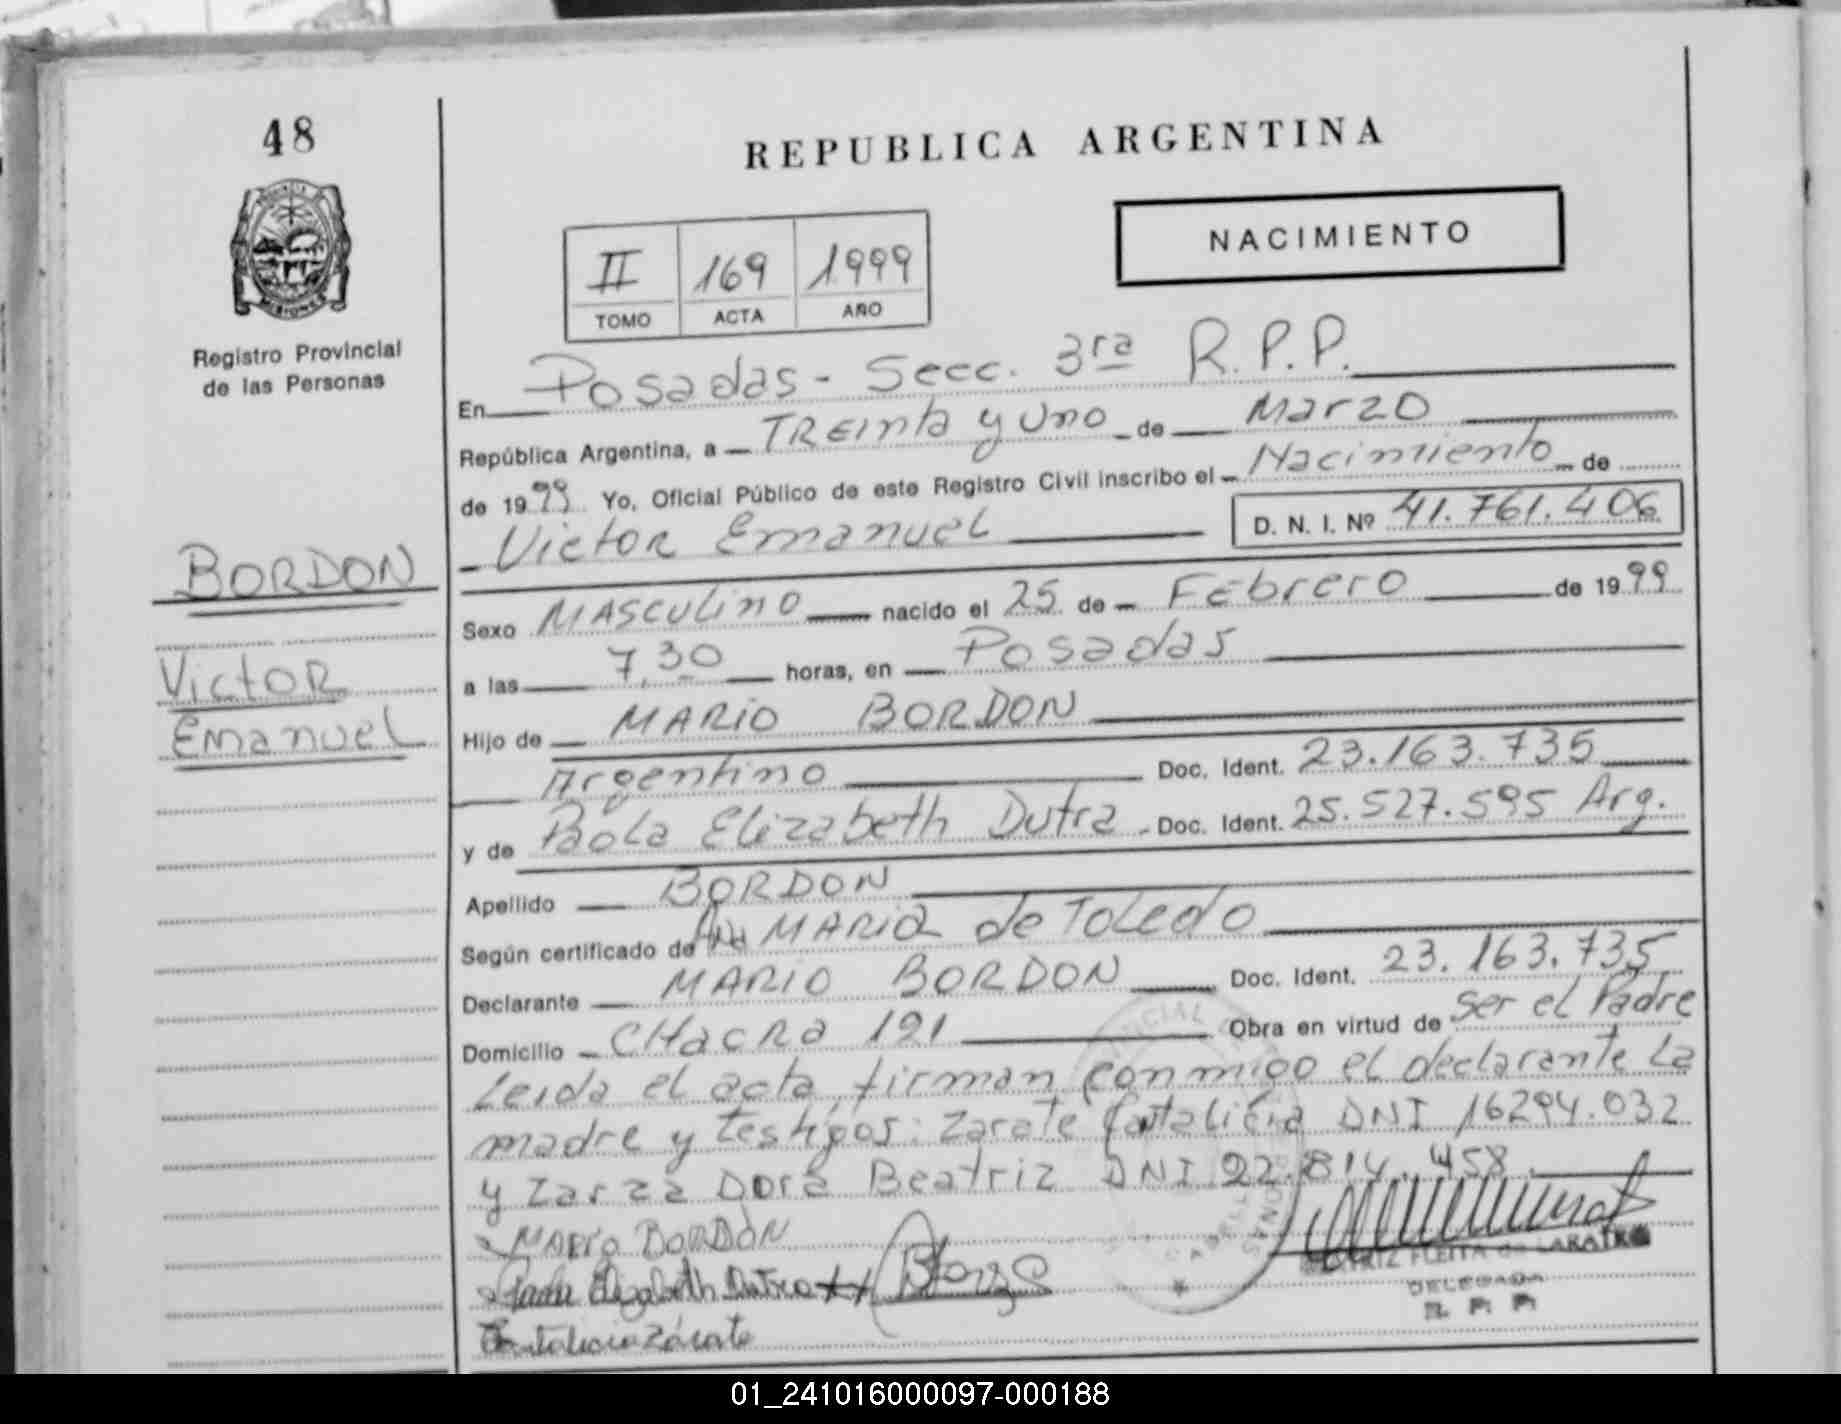 48
REPUBLICA ARGENTINA
NACIMIENTO
II 169 1999
TOMO ACTA AÑO
Registro Provincial
de las Personas
En Posadas - Secc. 3ra R.P.P.
República Argentina, a TREinta y Uno de Marzo
de 1999 Yo, Oficial Público de este Registro Civil inscribo el Nacimiento de
Victor Emanuel D. N. I. Nº 41.761.406
BORDON
Victor
Emanuel
Sexo MASCULino nacido el 25 de Febrero de 1999
a las 7,30 horas, en Posadas
Hijo de MARIO BORDON
Argentino Doc. Ident. 23.163.735
y de Paola Elizabeth Dutra - Doc. Ident. 25.527.595 Arg.
Apellido BORDON
Según certificado de Ana MARIA de Toledo
Declarante MARIO BORDON Doc. Ident. 23.163.735
Domicilio CHacRa 191 Obra en virtud de ser el Padre
Leida el acta, firman conmigo el declarante La
madre y testigos: Zarate DNI 16294.032
y Zarza Dora Beatriz DNI 22.814.458.
MARIO BORDON
Paola Elizabeth Dutra
Zárate
FLEITA de
DELEGADA
R. P. P.
01_241016000097-000188